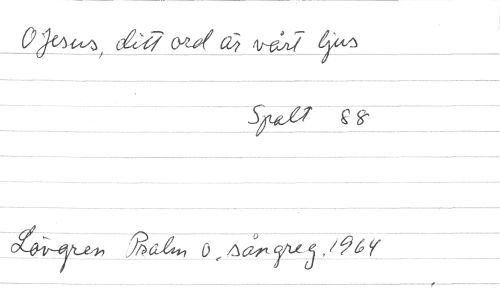 O Jesus, ditt ord är vårt ljus
Spalt 88
Lövgren Psalm o. sångreg. 1964